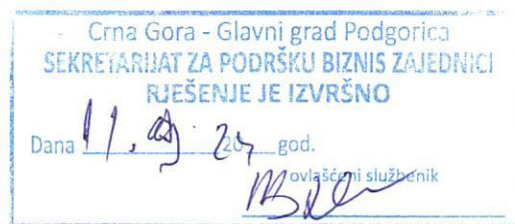 Crna Gora - Glavni grad Podgorica
SEKRETARIJAT ZA PODRŠKU BIZNIS ZAJEDNICI
RJEŠENJE JE IZVRŠNO
Dana 11. 20 god.
ovlašćeni službenik